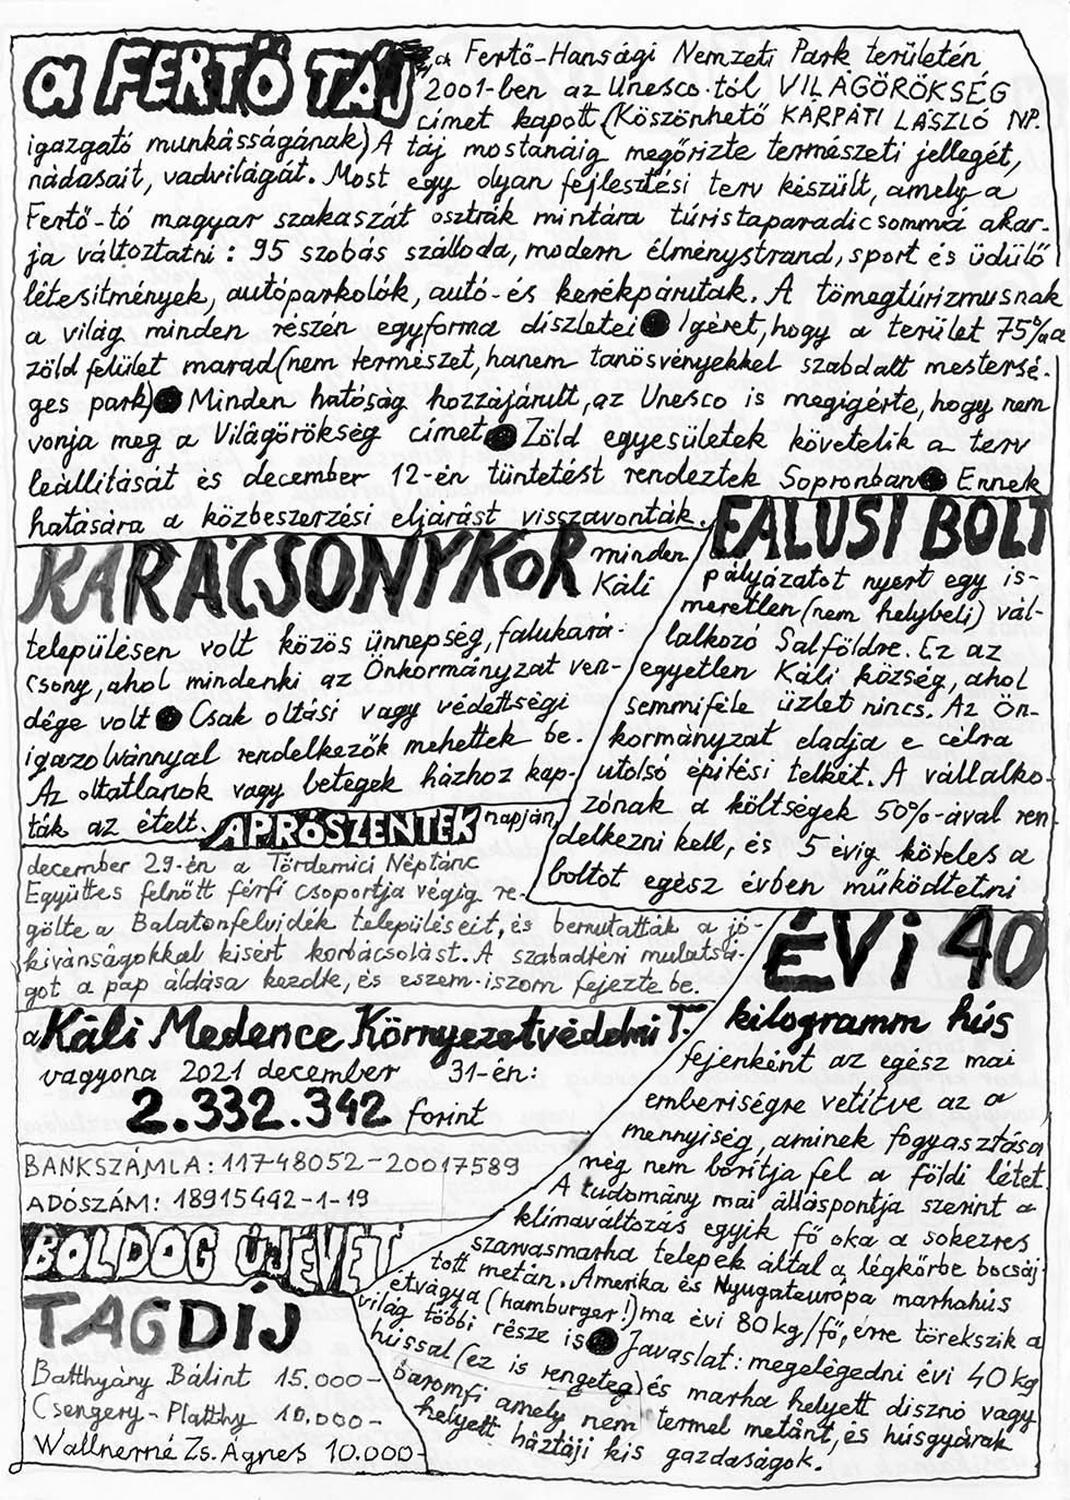 a FERTŐ TÁJ a Fertő-Hansági Nemzeti Park területén
2001-ben az Unesco-tól VILÁGÖRÖKSÉG
címet kapott (Köszönhető KÁRPÁTI LÁSZLÓ NP.
igazgató munkásságának) A táj mostanáig megőrizte természeti jellegét,
nádasait, vadvilágát. Most egy olyan fejlesztési terv készült, amely a
Fertő-tó magyar szakaszát osztrák mintára túristaparadicsommá akar-
ja változtatni: 95 szobás szálloda, modern élménystrand, sport és üdülő
létesítmények, autóparkolók, autó- és kerékpárutak. A tömegtúrizmusnak
a világ minden részén egyforma díszletei ● Igéret, hogy a terület 75%a
zöld felület marad (nem természet, hanem tanösvényekkel szabdalt mestersé-
ges park) ● Minden hatóság hozzájárult, az Unesco is megigérte, hogy nem
vonja meg a Világörökség címet ● Zöld egyesületek követelik a terv
leállítását és december 12-én tüntetést rendeztek Sopronban ● Ennek
hatására a közbeszerzési eljárást visszavonták.
KARÁCSONYKOR minden
Káli
településen volt közös ünnepség, falukará-
csony, ahol mindenki az Önkormányzat ven-
dége volt ● Csak oltási vagy védettségi
igazolvánnyal rendelkezők mehettek be.
Az oltatlanok vagy betegek házhoz kap-
ták az ételt.
FALUSI BOLT
pályázatot nyert egy is-
meretlen (nem helybeli) vál-
lalkozó Salföldre. Ez az
egyetlen Káli község, ahol
semmiféle üzlet nincs. Az Ön-
kormányzat eladja e célra
utolsó építési telkét. A vállalko-
zónak a költségek 50%-ával ren-
delkezni kell, és 5 évig köteles a
boltot egész évben működtetni
APRÓSZENTEK napján,
december 29-én a Tördemici Néptánc
Együttes felnőtt férfi csoportja végig re-
gölte a Balatonfelvidék településeit, és bemutatták a jó-
kivánságokkal kisért korbácsolást. A szabadtéri mulatsá-
got a pap áldása kezdte, és eszem-iszom fejezte be.
a Káli Medence Környezetvédelmi T.
vagyona 2021 december 31-én:
2.332.342 forint
BANKSZÁMLA: 11748052-20017589
ADÓSZÁM: 18915442-1-19
BOLDOG ÚJÉVET
TAGDÍJ
Batthyány Bálint 15.000-
Csengery-Platthy 10.000-
Wallnerné Zs. Ágnes 10.000-
ÉVi 40
kilogramm hús
fejenként az egész mai
emberiségre vetítve az a
mennyiség, aminek fogyasztása
még nem borítja fel a földi létet.
A tudomány mai álláspontja szerint a
klímaváltozás egyik fő oka a sokezres
szarvasmarha telepek által a légkörbe bocsáj-
tott metán. Amerika és Nyugateurópa marhahús
étvágya (hamburger!) ma évi 80 kg/fő, erre törekszik a
világ többi része is ● Javaslat: megelégedni évi 40 kg
hússal (ez is rengeteg) és marha helyett disznó vagy
baromfi amely nem termel metánt, és húsgyárak
helyett háztáji kis gazdaságok.